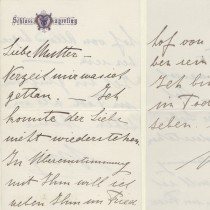 Schloss
Liebe Mutter –
Verzeiht mir was ich
gethan. – Ich
konnte der Liebe
nicht wiederstehen.
In Übereinstimmung
mit Ihm will ich
neben Ihm im Fried
hof von
ber sein
Ich bin
im Tod
Leben.